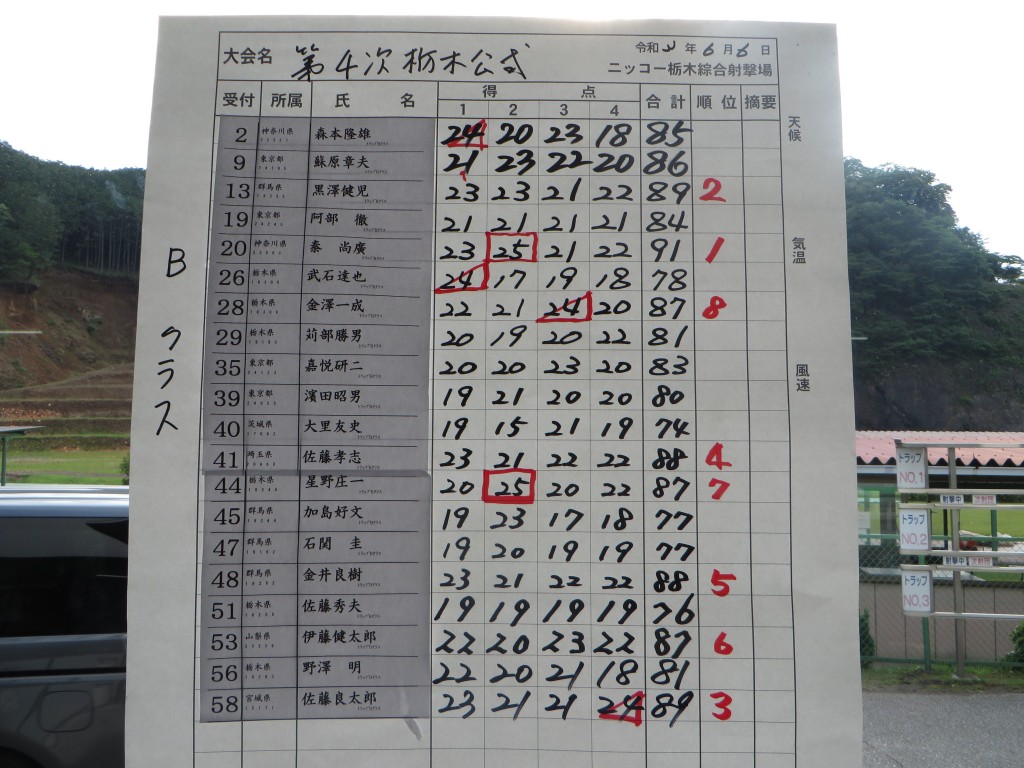 大会名 第4次栃木公式
令和 年6月6日
ニッコー栃木綜合射撃場
受付 所属 氏 名 得 点 合計 順位 摘要
1 2 3 4
2 神奈川県 森本隆雄 24 20 23 18 85
9 東京都 蘇原章夫 21 23 22 20 86
13 群馬県 黒澤健児 23 23 21 22 89 2
19 東京都 阿部 徹 21 21 21 21 84
20 神奈川県 秦 尚廣 23 25 21 22 91 1
26 栃木県 武石達也 24 17 19 18 78
28 栃木県 金澤一成 22 21 24 20 87 8
29 栃木県 苅部勝男 20 19 20 22 81
35 東京都 嘉悦研二 20 20 23 20 83
39 東京都 濱田昭男 19 21 20 20 80
40 茨城県 大里友史 19 15 21 19 74
41 埼玉県 佐藤孝志 23 21 22 22 88 4
44 栃木県 星野庄一 20 25 20 22 87 7
45 群馬県 加島好文 19 23 17 18 77
47 群馬県 石関 圭 19 20 19 19 77
48 群馬県 金井良樹 23 21 22 22 88 5
51 栃木県 佐藤秀夫 19 19 19 19 76
53 山梨県 伊藤健太郎 22 20 23 22 87 6
56 栃木県 野澤 明 22 20 21 18 81
58 宮城県 佐藤良太郎 23 21 21 24 89 3
Bクラス
天候
気温
風速
トラップ
NO.1
射撃中
トラップ
NO.2
射撃中
トラップ
NO.3